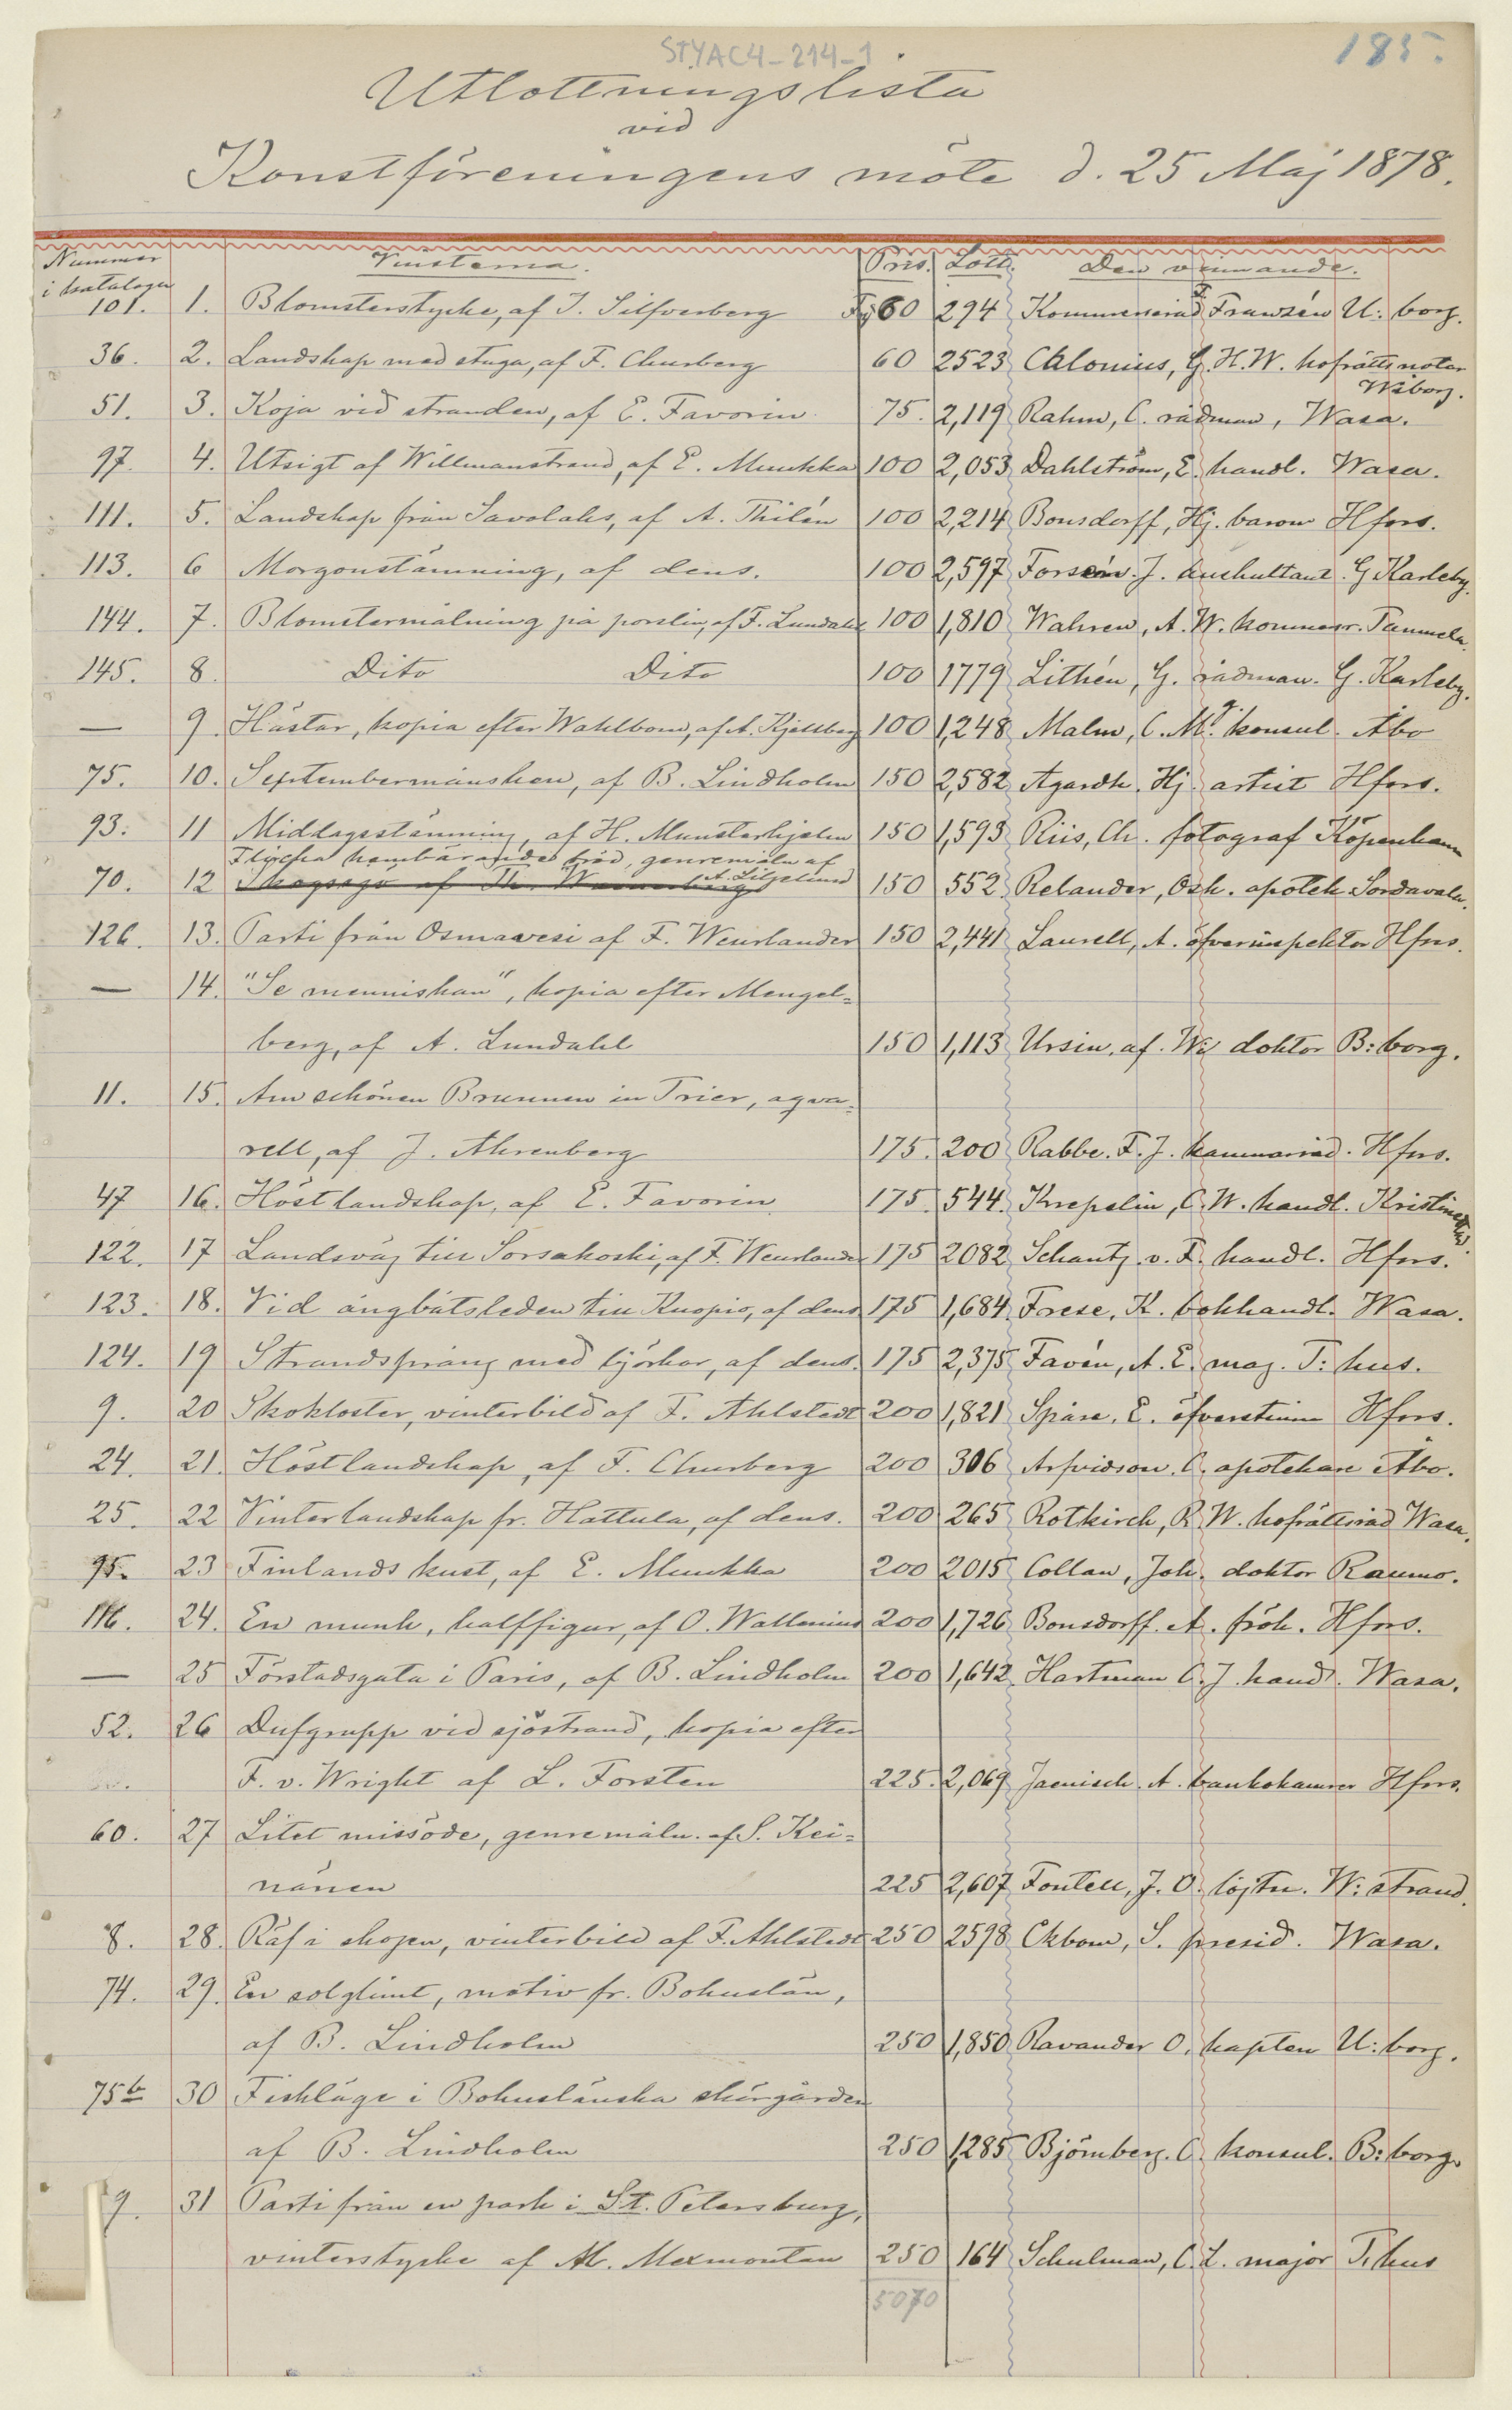 STYAC4-214-1
185.
Utlottningslista
vid
Konstföreningens möte d. 25 Maj 1878.
Nummer i katalogen Vinsterna. Pris. Lott. Den vinnande.
101. 1. Blomsterstycke, af I. Silfverberg Fmk 60 294 Kommerseråd F. Franzén U:borg.
36. 2. Landskap med stuga, af F. Churberg 60 2523 Chlonius, G. H. W. hofrätts notar
Wiborg.
51. 3. Koja vid stranden, af E. Favorin. 75. 2,119 Rahm, C. rådman, Wasa.
97. 4. Utsigt af Willmanstrand, af E. Muukka 100 2,053 Dahlström, E. handl. Wasa.
111. 5. Landskap från Savolaks, af A. Thilén 100 2,214 Bonsdorff, Hj. baron Hfors.
113. 6 Morgonstämning, af dens. 100 2,597 Forsén. J. auskultant. G Karleby.
144. 7. Blomstermålning på porslin, af F. Lundahl 100 1,810 Wahren, A. W. kommerser. Tammela.
145. 8. Dito Dito 100 1779 Lithén, G. rådman. G. Karleby.
— 9. Hästar, kopia efter Wahlbom, af A. Kjellberg 100 1,248 Malm, C. M. konsul. Åbo
75. 10. Septembermånsken, af B. Lindholm 150 2,582 Agardh. Hj. artist Hfors.
93. 11 Middagsstämning, af H. Munsterhjelm 150 1,593 Riis, Ch. fotograf Köpenhamn
Flicka hembärande bröd, genremåln af
70. 12 Skogsgo af Th. Wennerberg A. Liljelund 150 552. Relander, Osk. apotek Sordavala.
126. 13. Parti från Osmavesi af F. Wenrlander 150 2,441 Laurell, A. öfverinspektor Hfors.
— 14. "Se menniskan", kopia efter Mengel-
berg, af A. Lundahl 150 1,113 Ursin, af. W. doktor B:borg.
11. 15. Am schönen Brunnen in Trier, aqva-
rell, af J. Ahrenberg 175. 200 Rabbe. F. J. kammarråd. Hfors.
47 16. Höstlandskap, af E. Favorin. 175. 544. Krepelin, C. W. handl. Kristinestad.
122. 17 Landsväg till Sorsakoski, af F. Wenrlander 175 2082 Schantz v. F. handl. Hfors.
123. 18. Vid ångbåtsleden till Kuopio, af dens 175 1,684 Frese, K. bokhandl. Wasa.
124. 19 Strandspräng med björkar, af dens. 175 2,375 Favén, A. E. mag. T:hus.
9. 20 Skokloster, vinterbild af F. Ahlstedt 200 1,821 Spåre, E. öfverstinna Hfors.
24. 21. Höstlandskap, af F. Churberg 200 306 Arfvidson. C. apotekare Åbo.
25. 22 Vinterlandskap fr. Hattula, af dens. 200 265 Rotkirch, R. W. hofrättsråd Wasa.
95. 23 Finlands kust, af E. Muukka 200 2015 Collan, Joh. doktor Raumo.
116. 24. En munk, halffigur, af O. Wallenius 200 1,726 Bonsdorff. A. frök. Hfors.
— 25 Förstadsgata i Paris, af B. Lindholm 200 1,642. Hartman C. J. handl. Wasa.
52. 26 Dufgrupp vid sjöstrand, kopia efter
F. v. Wright af L. Forsten 225. 2,069 Jaenisch. A. bankokamrer Hfors.
60. 27 Litet missöde, genremåln. af S. Kei-
nänen 225 2,607 Fontell, J. O. löjtn. W:strand.
8. 28. Räf i skogen, vinterbild af F. Ahlstedt 250 2598 Ekbom, S. presid. Wasa.
74. 29. En solglimt, motiv fr. Bohuslän,
af B. Lindholm 250 1,850 Ravander O. kapten U:borg.
75b 30 Fiskläge i Bohuslänska skärgården
af B. Lindholm 250 1,285 Björnberg. C. konsul. B:borg.
9. 31 Parti från en park i St. Petersburg,
vinterstycke af M. Mexmontan 250 164 Schulman, C. L. major T:hus
5070